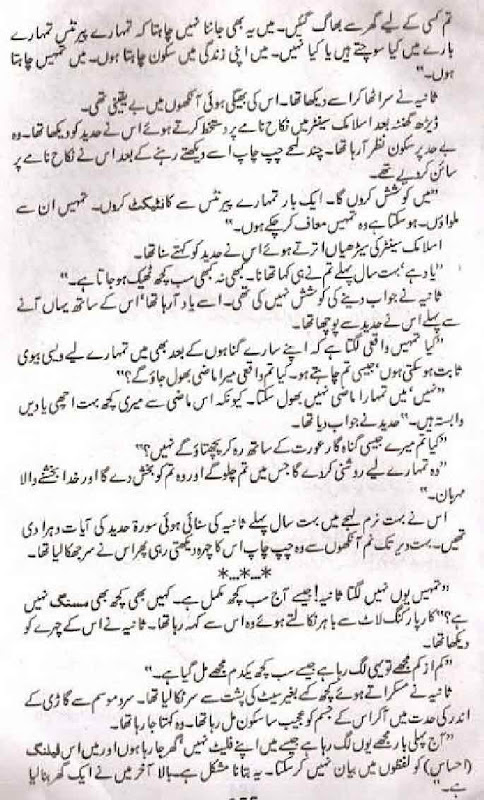 تم کسی کے لیے گھر سے بھاگ گئیں۔ میں یہ بھی جاننا نہیں چاہتا کہ تمہارے پیرنٹس تمہارے
بارے میں کیا سوچتے ہیں یا کیا نہیں۔ میں اپنی زندگی میں سکون چاہتا ہوں۔ میں تمہیں چاہتا
ہوں۔"
ثانیہ نے سر اٹھا کر اسے دیکھا تھا۔ اس کی بھیگی ہوئی آنکھوں میں بے یقینی تھی۔
ڈیڑھ گھنٹہ بعد اسلامک سینٹر میں نکاح نامے پر دستخط کرتے ہوئے اس نے حدید کو دیکھا تھا۔ وہ
بے حد پر سکون نظر آ رہا تھا۔ چند لمحے چپ چاپ اسے دیکھتے رہنے کے بعد اس نے نکاح نامے پر
سائن کر دیے تھے۔
"میں کوشش کروں گا۔ ایک بار تمہارے پیرنٹس سے کانٹیکٹ کروں۔ تمہیں ان سے
ملواؤں۔ ہو سکتا ہے وہ تمہیں معاف کر چکے ہوں۔"
اسلامک سینٹر کی سیڑھیاں اترتے ہوئے اس نے حدید کو کہتے سنا تھا۔
"یاد ہے' بہت سال پہلے تم نے ہی کہا تھا نا۔ کبھی نہ کبھی سب کچھ ٹھیک ہو جاتا ہے۔"
ثانیہ نے جواب دینے کی کوشش نہیں کی تھی۔ اسے یاد آ رہا تھا' اس کے ساتھ یہاں آنے
سے پہلے اس نے حدید سے پوچھا تھا۔
"کیا تمہیں واقعی لگتا ہے کہ اپنے سارے گناہوں کے بعد بھی میں تمہارے لیے ویسی بیوی
ثابت ہو سکتی ہوں' جیسی تم چاہتے ہو۔ کیا تم واقعی میرا ماضی بھول جاؤ گے؟"
"نہیں' میں تمہارا ماضی نہیں بھول سکتا۔ کیونکہ اس ماضی سے میری کچھ بہت اچھی یادیں
وابستہ ہیں۔" حدید نے جواب دیا تھا۔
"کیا تم میرے جیسی گناہ گار عورت کے ساتھ رہ کر پچھتاؤ گے نہیں؟"
"وہ تمہارے لیے روشنی کر دے گا جس میں تم چلو گے اور وہ تم کو بخش دے گا اور خدا بخشنے والا
مہربان۔"
اس نے بہت نرم لہجے میں بہت سال پہلے ثانیہ کی سنائی ہوئی سورۃ حدید کی آیات دہرا دی
تھیں۔ بہت دیر تک نم آنکھوں سے وہ چپ چاپ اس کا چہرہ دیکھتی رہی پھر اس نے سر جھکا لیا تھا۔
*...*...*
"تمہیں یوں نہیں لگتا ثانیہ! جیسے آج سب کچھ مکمل ہے۔ کہیں بھی کچھ بھی مسنگ نہیں
ہے؟" کار پارکنگ لاٹ سے باہر نکالتے ہوئے وہ اس سے کہہ رہا تھا۔ ثانیہ نے اس کے چہرے کو
دیکھا تھا۔
"کم از کم مجھے تو یہی لگ رہا ہے جیسے سب کچھ یکدم مجھے مل گیا ہے۔"
ثانیہ نے مسکراتے ہوئے کچھ کہے بغیر سیٹ کی پشت سے سر ٹکا لیا تھا۔ سرد موسم سے گاڑی کے
اندر کی حدت میں آ کر اس کے جسم کو عجیب سا سکون مل رہا تھا۔ وہ کہتا جا رہا تھا۔
"آج پہلی بار مجھے یوں لگ رہا ہے جیسے میں اپنے فلیٹ نہیں' گھر جا رہا ہوں اور میں اس فیلنگ
(احساس) کو لفظوں میں بیان نہیں کر سکتا۔ یہ بتانا مشکل ہے۔ بالآخر میں نے ایک گھر بنا لیا
ہے۔"